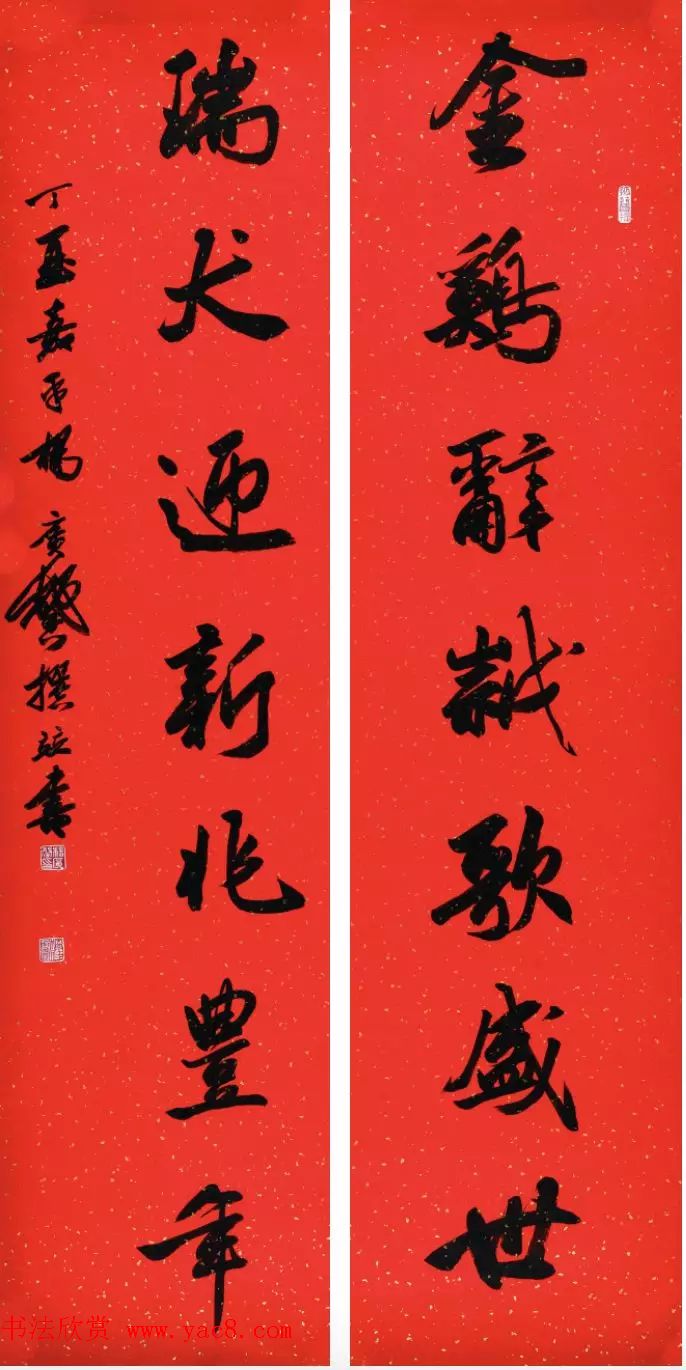 金鷄辭歲歌盛世
瑞犬迎新兆豐年
丁酉嘉平楊廣馨撰並書
书法欣赏 www.yac8.com